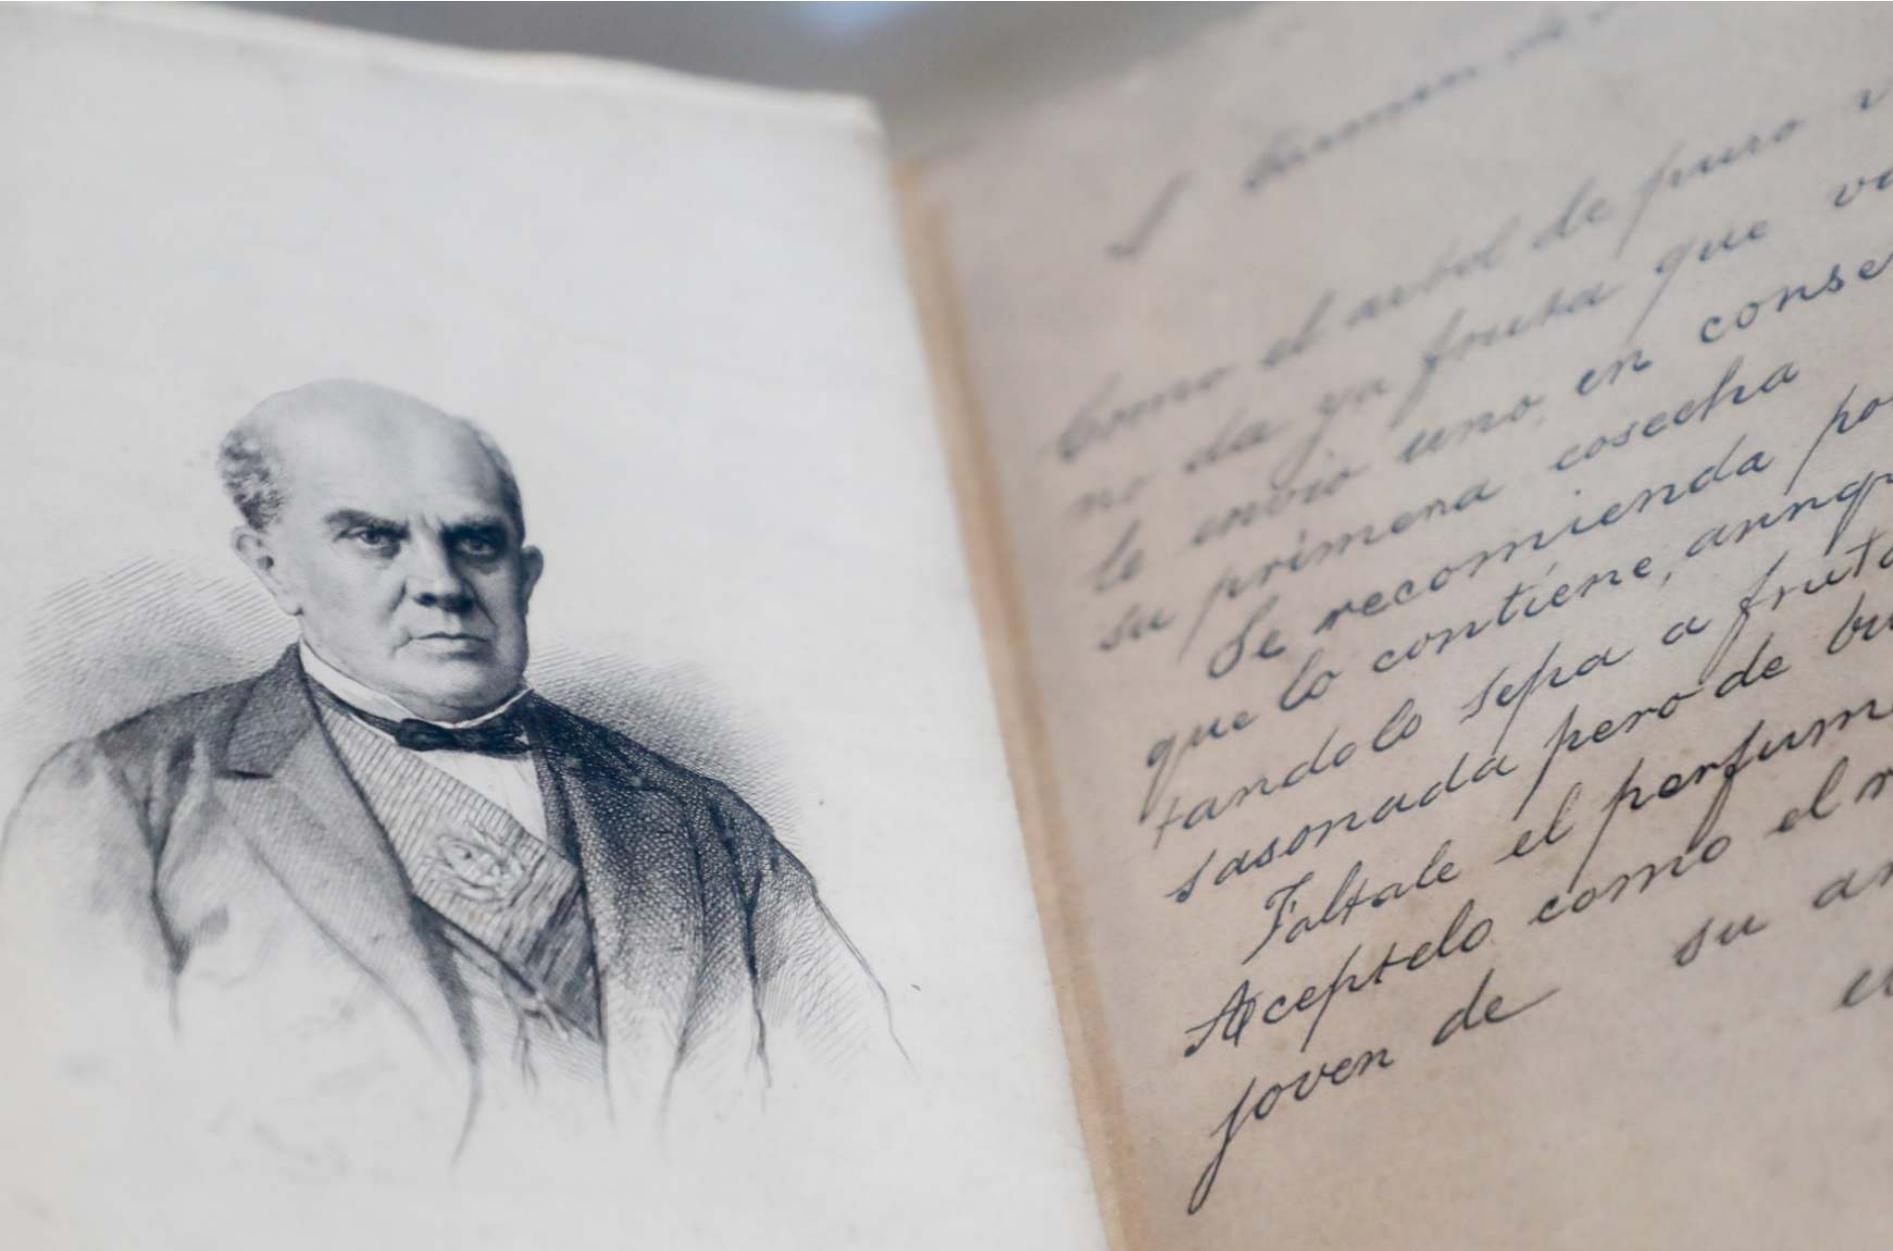 Como el arbol de puro v
no da ya fruta que va
le envio uno, en conse
su primera cosecha
Se recomienda po
que lo contiene, aunqu
tandolo sepa a fruta
sasonada pero de bu
Faltale el perfum
Aceptelo como el r
joven de su an